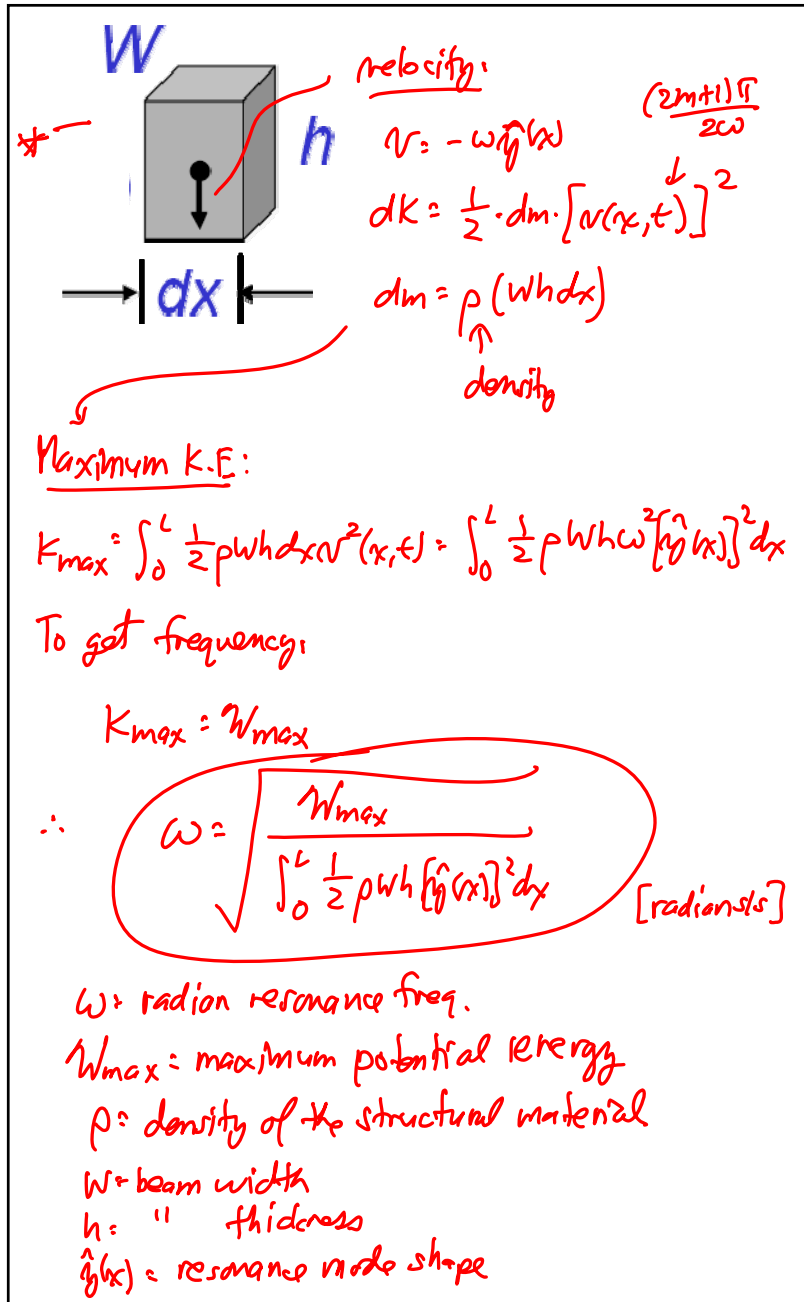 W
h
dx
velocity:
v = -ωŷ(x)
(2m+1)π / 2ω
dK = 1/2 · dm · [v(x,t)]²
dm = ρ(Whdx)
density
Maximum K.E:
Kmax = ∫₀ᴸ 1/2 ρWhdxv²(x,t) = ∫₀ᴸ 1/2 ρWhω²[ŷ(x)]²dx
To get frequency:
Kmax = Wmax
∴ ω = √( Wmax / ∫₀ᴸ 1/2 ρWh[ŷ(x)]²dx ) [radians/s]
ω = radian resonance freq.
Wmax = maximum potential energy
ρ = density of the structural material
W = beam width
h = " thickness
ŷ(x) = resonance mode shape